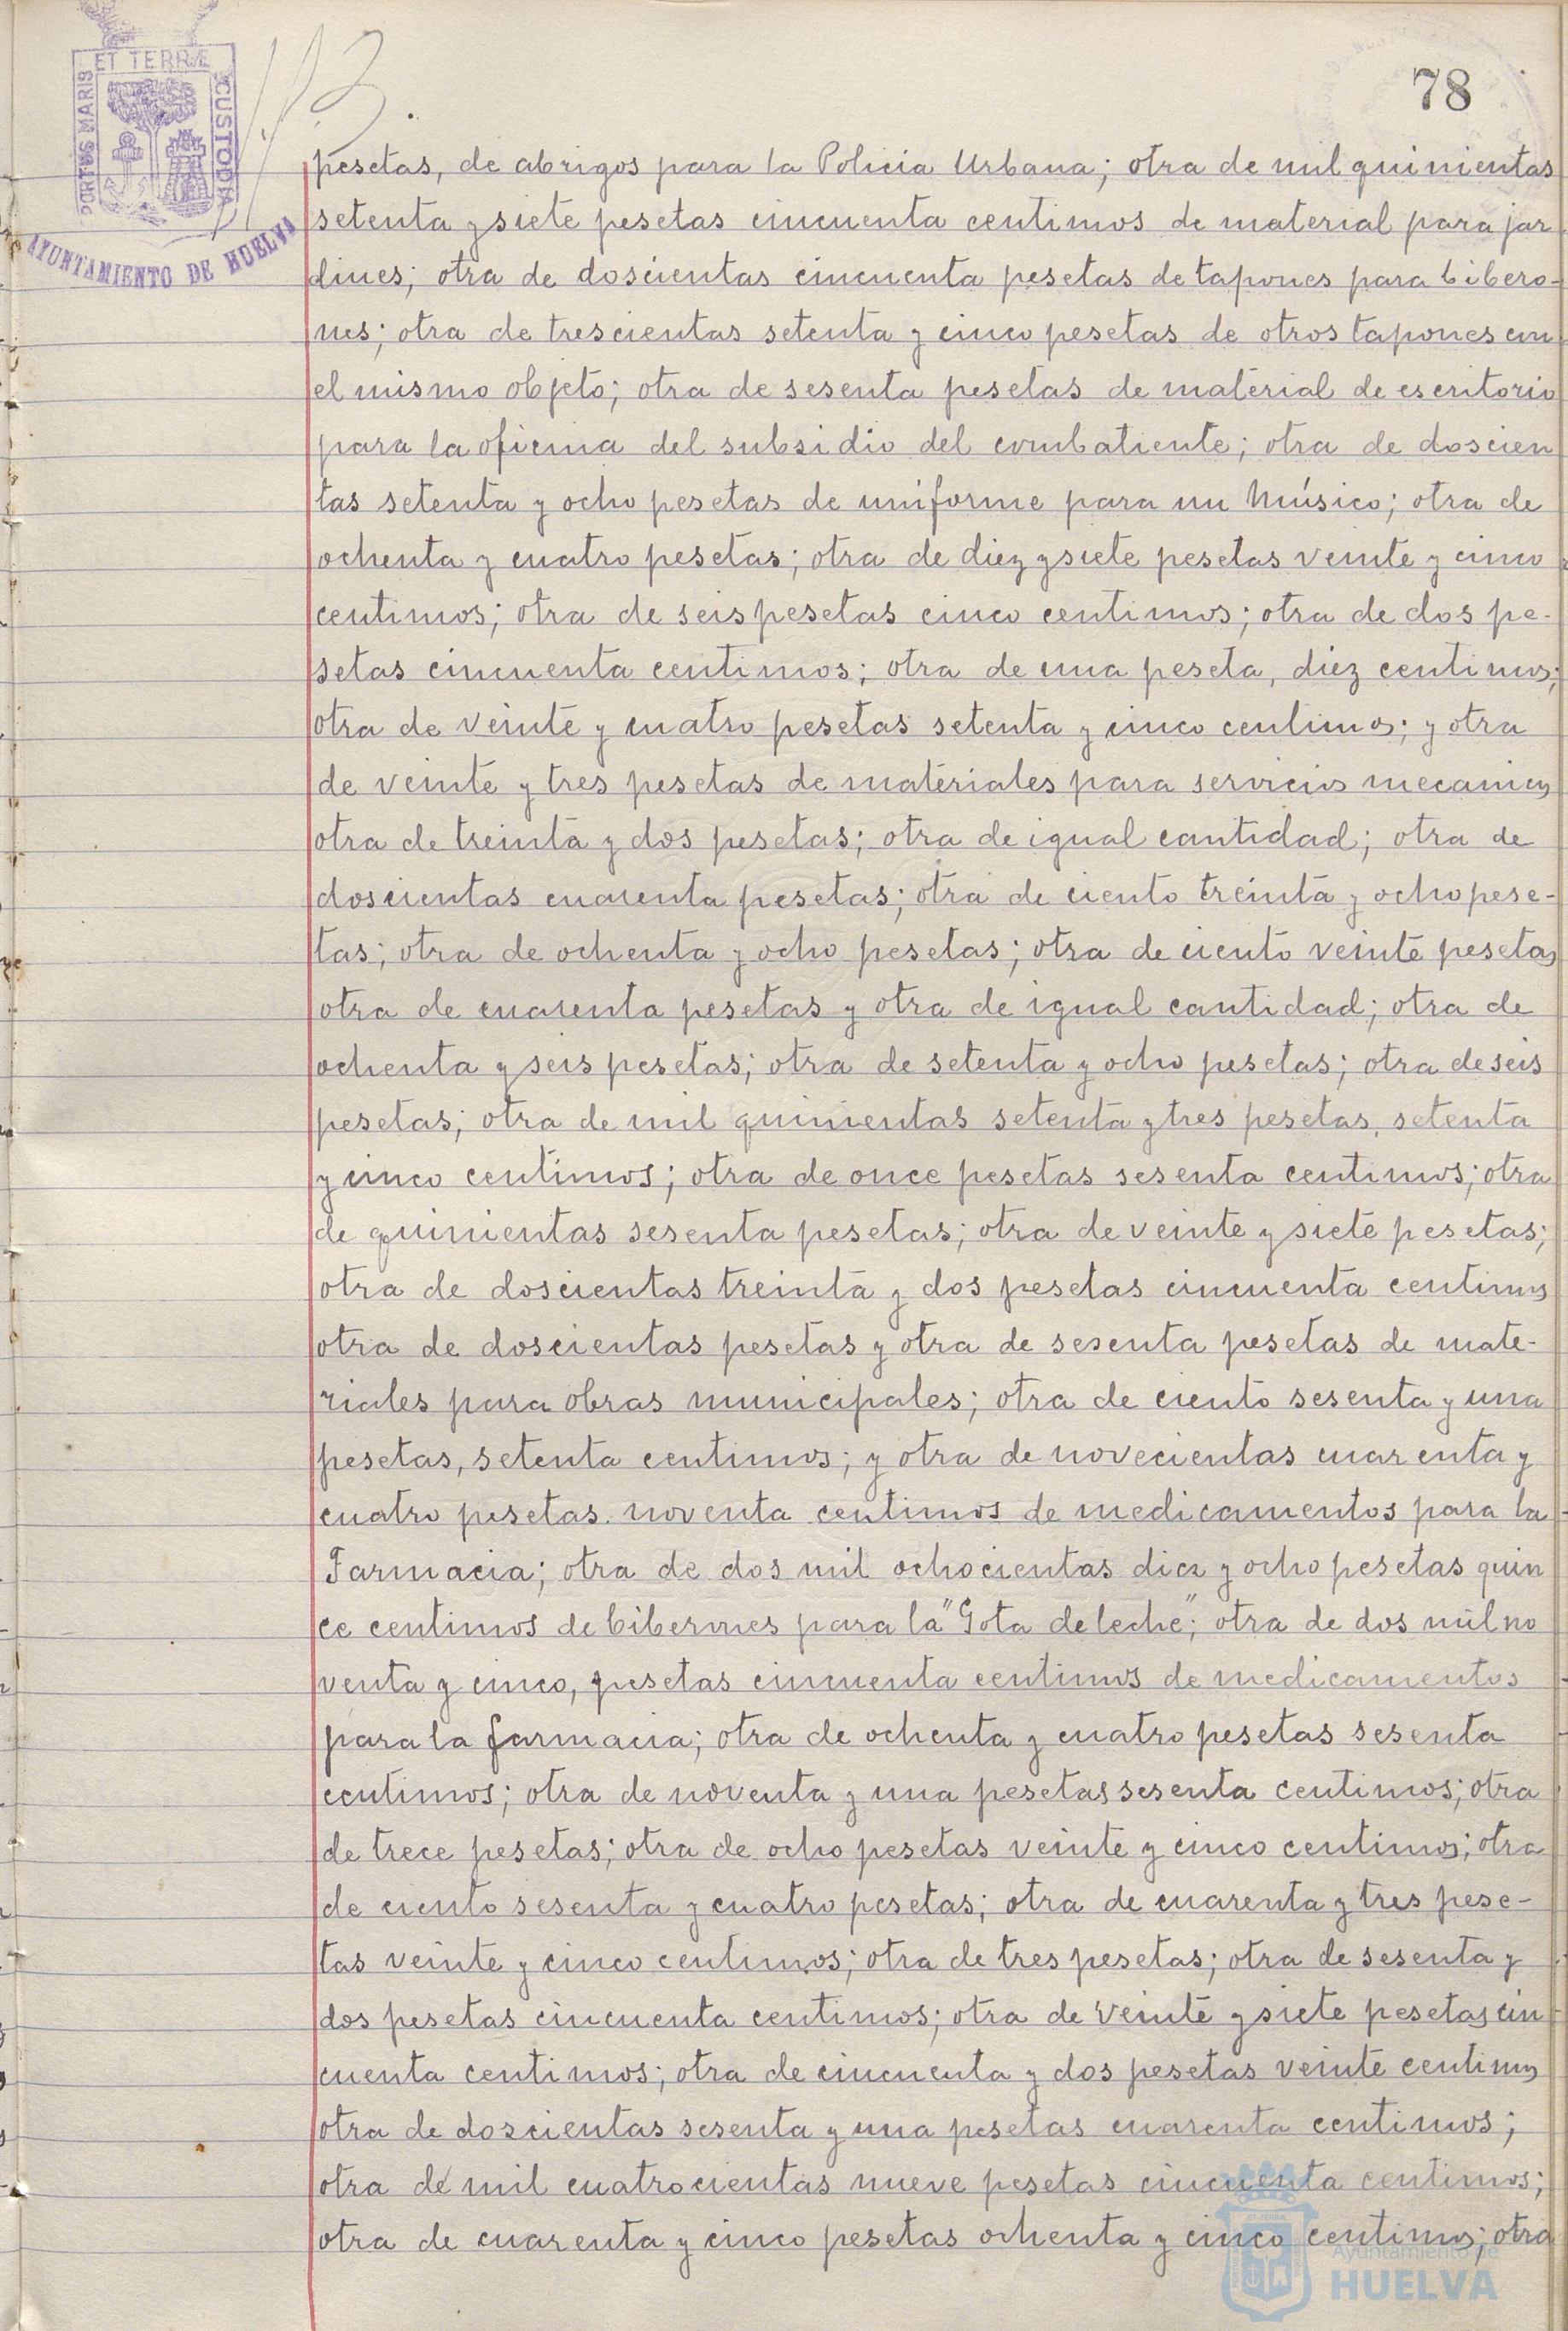 PORTUS MARIS ET TERRÆ CUSTODIA
AYUNTAMIENTO DE HUELVA
78
pesetas, de abrigos para la Policia Urbana; otra de mil quinientas
setenta y siete pesetas cincuenta centimos de material para jar
dines; otra de doscientas cincuenta pesetas de tapones para bibero-
nes; otra de trescientas setenta y cinco pesetas de otros tapones con
el mismo objeto; otra de sesenta pesetas de material de escritorio
para la oficina del subsidio del combatiente; otra de doscien
tas setenta y ocho pesetas de uniforme para un Músico; otra de
ochenta y cuatro pesetas; otra de diez y siete pesetas veinte y cinco
centimos; otra de seis pesetas cinco centimos; otra de dos pe-
setas cincuenta centimos; otra de una peseta, diez centimos;
otra de veinte y cuatro pesetas setenta y cinco centimos; y otra
de veinte y tres pesetas de materiales para servicios mecanicos
otra de treinta y dos pesetas; otra de igual cantidad; otra de
doscientas cuarenta pesetas; otra de ciento treinta y ocho pese-
tas; otra de ochenta y ocho pesetas; otra de ciento veinte pesetas
otra de cuarenta pesetas y otra de igual cantidad; otra de
ochenta y seis pesetas; otra de setenta y ocho pesetas; otra de seis
pesetas; otra de mil quinientas setenta y tres pesetas, setenta
y cinco centimos; otra de once pesetas sesenta centimos; otra
de quinientas sesenta pesetas; otra de veinte y siete pesetas;
otra de doscientas treinta y dos pesetas cincuenta centimos
otra de doscientas pesetas y otra de sesenta pesetas de mate-
riales para obras municipales; otra de ciento sesenta y una
pesetas, setenta centimos; y otra de novecientas cuarenta y
cuatro pesetas. noventa centimos de medicamentos para la
Farmacia; otra de dos mil ochocientas diez y ocho pesetas quin
ce centimos de biberones para la "Gota de leche"; otra de dos mil no
venta y cinco, pesetas cincuenta centimos de medicamentos
para la farmacia; otra de ochenta y cuatro pesetas sesenta
centimos; otra de noventa y una pesetas sesenta centimos; otra
de trece pesetas; otra de ocho pesetas veinte y cinco centimos; otra
de ciento sesenta y cuatro pesetas; otra de cuarenta y tres pese-
tas veinte y cinco centimos; otra de tres pesetas; otra de sesenta y
dos pesetas cincuenta centimos; otra de veinte y siete pesetas cin
cuenta centimos; otra de cincuenta y dos pesetas veinte centimos
otra de doscientas sesenta y una pesetas cuarenta centimos;
otra de mil cuatrocientas nueve pesetas cincuenta centimos;
otra de cuarenta y cinco pesetas ochenta y cinco centimos; otra
Ayuntamiento de
HUELVA